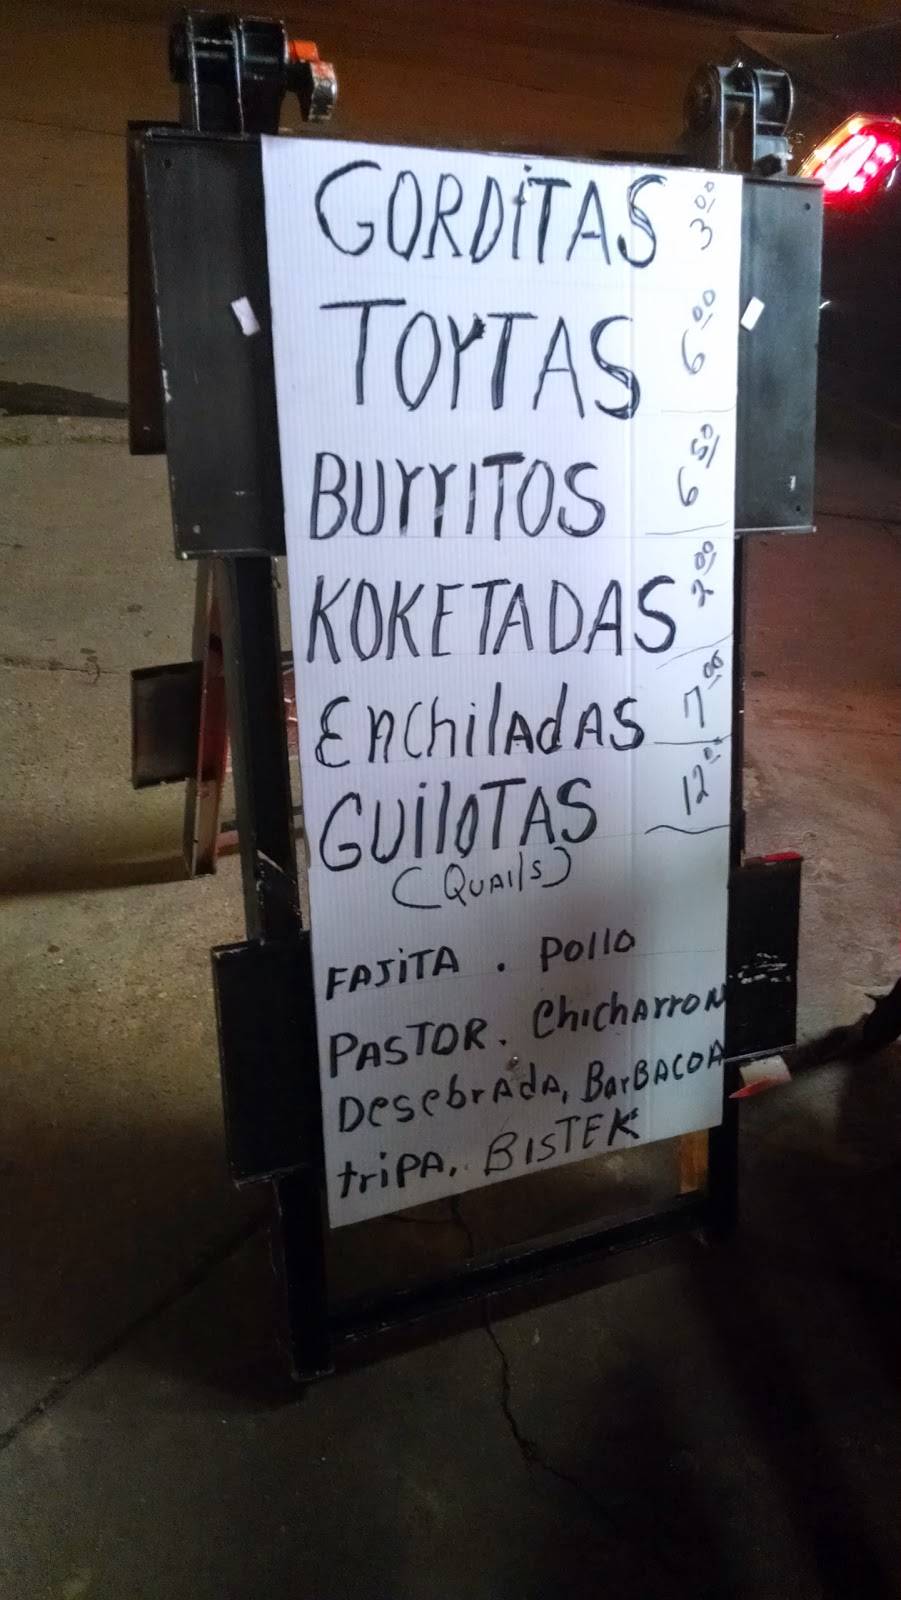 GORDiTAS 3.00
TOrTAS 6.00
BUrriTOS 6.50
KOKETADAS 2.00
EnChilAdAS 7.00
GUilOTAS 12.00
(QUAilS)
FAJiTA . Pollo
PASTOR. ChichArroN
DesebrAdA, BarBACOA
triPA. BISTEK